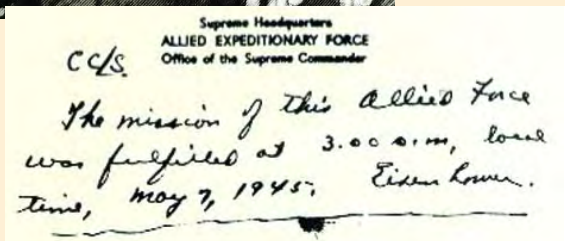 Supreme Headquarters
ALLIED EXPEDITIONARY FORCE
Office of the Supreme Commander
CC/S.
The mission of this Allied Force
was fulfilled at 3.00 a.m, local
time, May 7, 1945. Eisenhower.